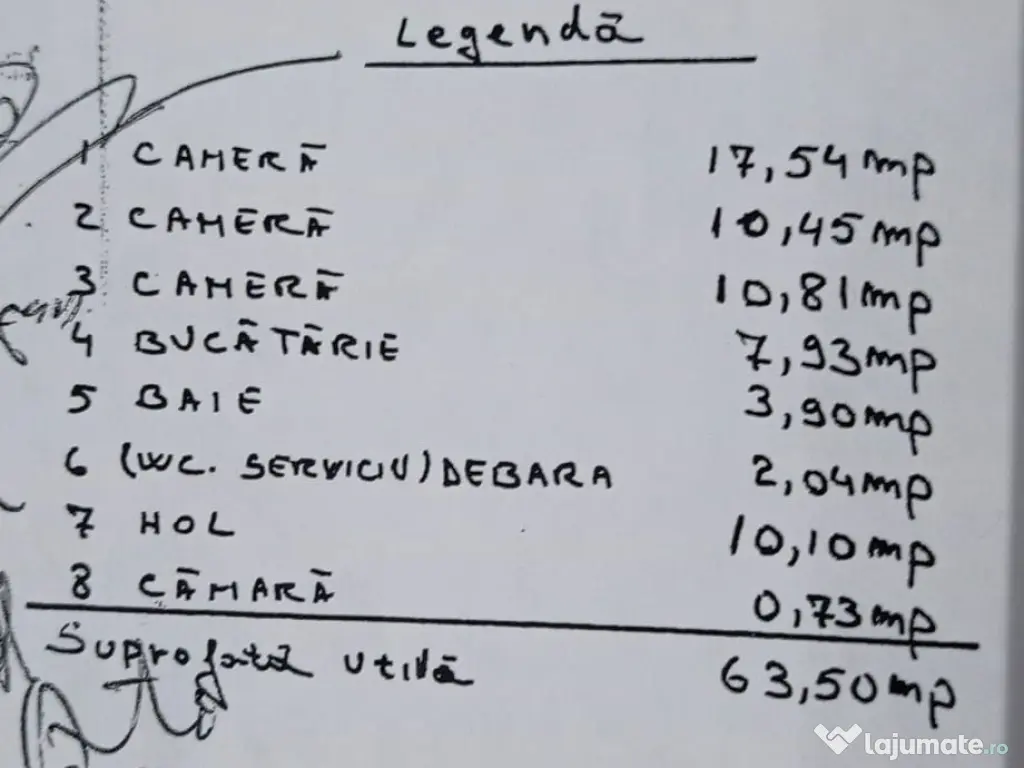 Legendă
1 CAMERĂ 17,54 mp
2 CAMERĂ 10,45 mp
3 CAMERĂ 10,81 mp
4 BUCĂTĂRIE 7,93 mp
5 BAIE 3,90 mp
6 (WC. SERVICIU) DEBARA 2,04 mp
7 HOL 10,10 mp
8 CĂMARĂ 0,73 mp
Suprofată utilă 63,50 mp
lajumate.ro